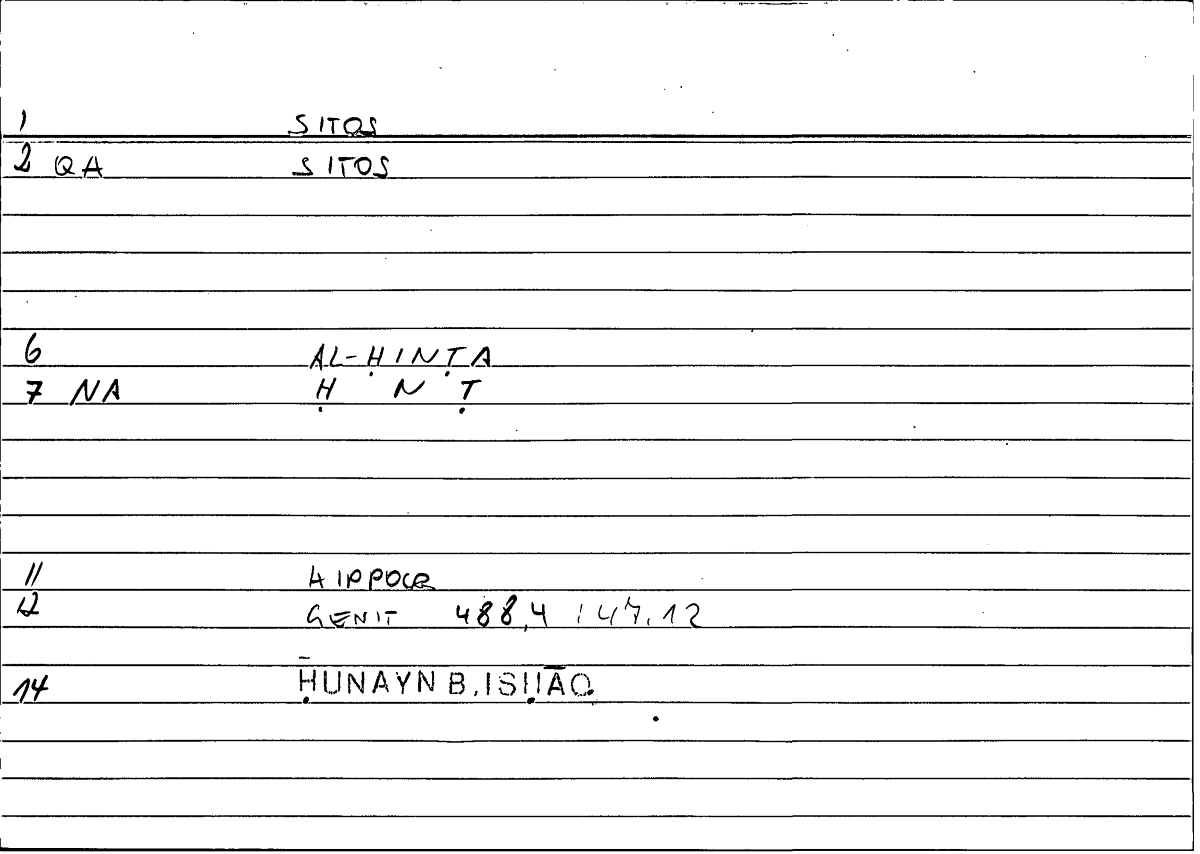 1 SITOS
2 QA SITOS
6 AL-ḤINṬA
7 NA Ḥ N Ṭ
11 HIPPOCR
12 GENIT 488,4 : 47.12
14 ḤUNAYN B. ISḤĀQ